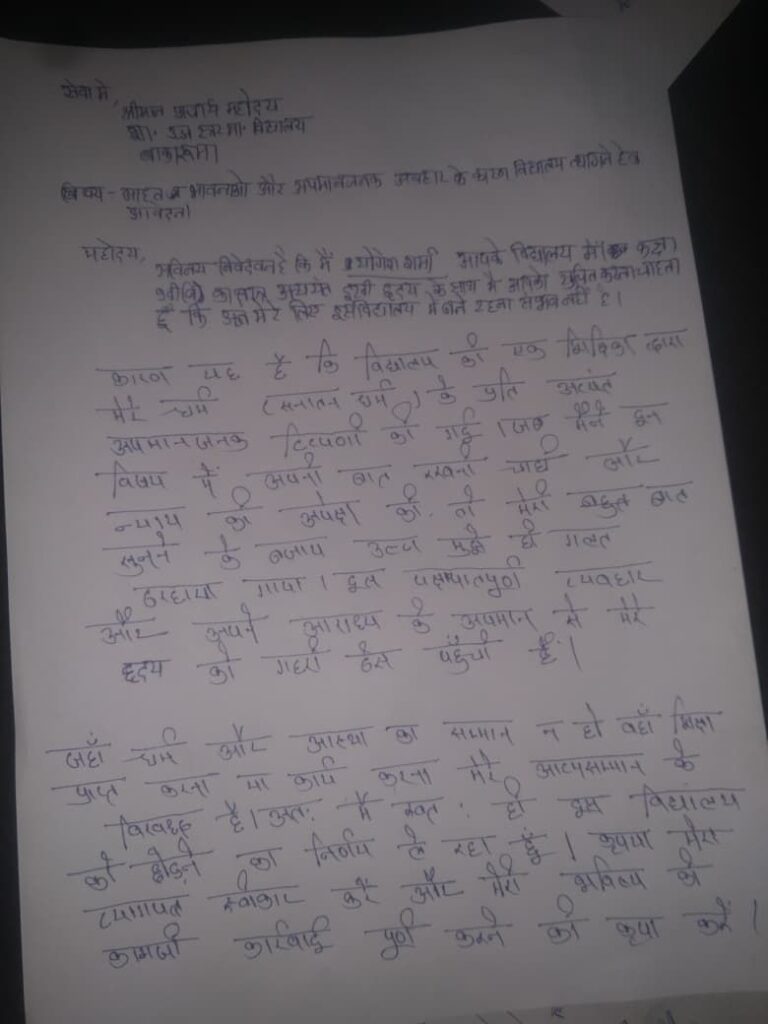 सेवा में,
श्रीमान प्राचार्य महोदय
शा. उच्च स्तर मा. विद्यालय
विषय - आहत भावनाओ और अपमानजनक व्यवहार के कारण विद्यालय त्यागने हेतु
आवेदन।
महोदय,
सविनय निवेदन है कि मैं योगेश शर्मा आपके विद्यालय में कक्षा
का छात्र अत्यंत दुखी हृदय के साथ मै आपको सूचित करना चाहता
हूँ कि अब मेरे लिए इस विद्यालय में बने रहना संभव नहीं है।
कारण यह है कि विद्यालय की एक शिक्षिका द्वारा
मेरे धर्म (सनातन धर्म) के प्रति अत्यंत
अपमानजनक टिप्पणी की गई। जब मैंने इस
विषय में अपनी बात रखनी चाही और
न्याय की अपेक्षा की, तो मेरी बात
सुनने के बजाय उल्टा मुझे ही गलत
ठहराया गया। इस पक्षपातपूर्ण व्यवहार
और अपने आराध्य के अपमान से मेरे
हृदय को गहरी ठेस पहुँची है।
जहाँ धर्म और आस्था का सम्मान न हो वहाँ शिक्षा
प्राप्त करना या कार्य करना मेरे आत्मसम्मान के
विरुद्ध है। अतः मैं स्वतः ही इस विद्यालय
को छोड़ने का निर्णय ले रहा हूँ। कृपया मेरा
त्यागपत्र स्वीकार करें और मेरी भविष्य की
कागजी कार्रवाई पूर्ण करने की कृपा करें।